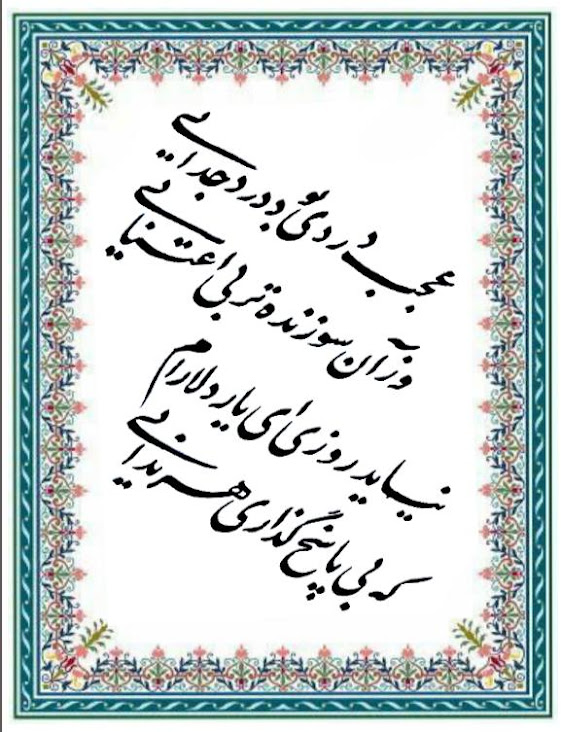 عجب دردی بود درد جدایی
وزآن سوزنده تر بی اعتنایی
نیاید روزی ای یار دلارام
که بی پاسخ گذاری هر ندایی